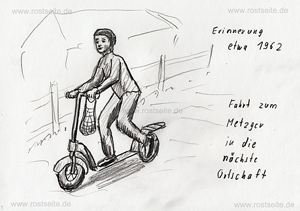 www.rostseite.de
www.rostseite.de
Erinnerung
etwa 1962
Fahrt zum
Metzger
in die
nächste
Ortschaft
www.rostseite.de
www.rostseite.de